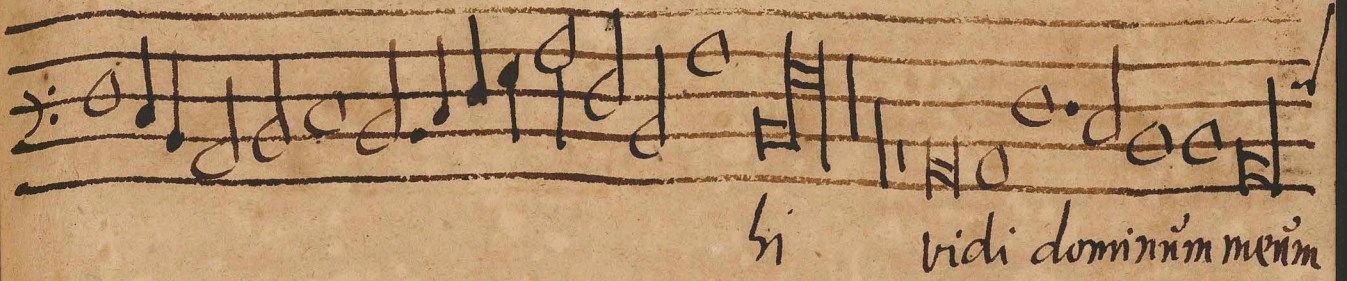 hi vidi dominum meum